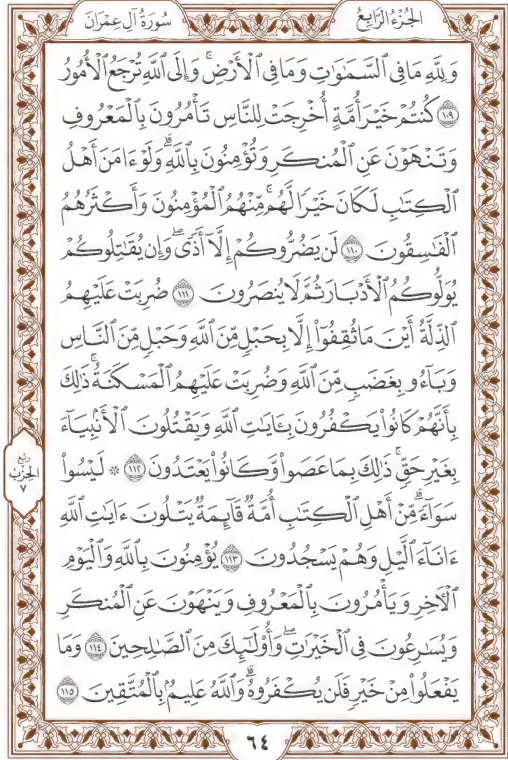 الجُزْءُ الرَّابِعُ
سُورَةُ آلِ عِمْرَانَ
وَلِلَّهِ مَا فِي ٱلسَّمَٰوَٰتِ وَمَا فِي ٱلْأَرْضِۚ وَإِلَى ٱللَّهِ تُرْجَعُ ٱلْأُمُورُ
١٠٩ كُنتُمْ خَيْرَ أُمَّةٍ أُخْرِجَتْ لِلنَّاسِ تَأْمُرُونَ بِٱلْمَعْرُوفِ
وَتَنْهَوْنَ عَنِ ٱلْمُنكَرِ وَتُؤْمِنُونَ بِٱللَّهِۗ وَلَوْ ءَامَنَ أَهْلُ
ٱلْكِتَٰبِ لَكَانَ خَيْرًا لَّهُمۚ مِّنْهُمُ ٱلْمُؤْمِنُونَ وَأَكْثَرُهُمُ
ٱلْفَٰسِقُونَ ١١٠ لَن يَضُرُّوكُمْ إِلَّآ أَذًىۖ وَإِن يُقَٰتِلُوكُمْ
يُوَلُّوكُمُ ٱلْأَدْبَارَ ثُمَّ لَا يُنصَرُونَ ١١١ ضُرِبَتْ عَلَيْهِمُ
ٱلذِّلَّةُ أَيْنَ مَا ثُقِفُوٓا۟ إِلَّا بِحَبْلٍ مِّنَ ٱللَّهِ وَحَبْلٍ مِّنَ ٱلنَّاسِ
وَبَآءُو بِغَضَبٍ مِّنَ ٱللَّهِ وَضُرِبَتْ عَلَيْهِمُ ٱلْمَسْكَنَةُۚ ذَٰلِكَ
بِأَنَّهُمْ كَانُوا۟ يَكْفُرُونَ بِـَٔايَٰتِ ٱللَّهِ وَيَقْتُلُونَ ٱلْأَنۢبِيَآءَ
بِغَيْرِ حَقٍّۚ ذَٰلِكَ بِمَا عَصَوا۟ وَّكَانُوا۟ يَعْتَدُونَ ١١٢ ۞ لَيْسُوا۟
سَوَآءًۗ مِّنْ أَهْلِ ٱلْكِتَٰبِ أُمَّةٌ قَآئِمَةٌ يَتْلُونَ ءَايَٰتِ ٱللَّهِ
ءَانَآءَ ٱلَّيْلِ وَهُمْ يَسْجُدُونَ ١١٣ يُؤْمِنُونَ بِٱللَّهِ وَٱلْيَوْمِ
ٱلْأٓخِرِ وَيَأْمُرُونَ بِٱلْمَعْرُوفِ وَيَنْهَوْنَ عَنِ ٱلْمُنكَرِ
وَيُسَٰرِعُونَ فِي ٱلْخَيْرَٰتِۖ وَأُو۟لَٰٓئِكَ مِنَ ٱلصَّٰلِحِينَ ١١٤ وَمَا
يَفْعَلُوا۟ مِنْ خَيْرٍ فَلَن يُكْفَرُوهُۗ وَٱللَّهُ عَلِيمٌۢ بِٱلْمُتَّقِينَ ١١٥
رُبْع
الحِزْب
٧
٦٤